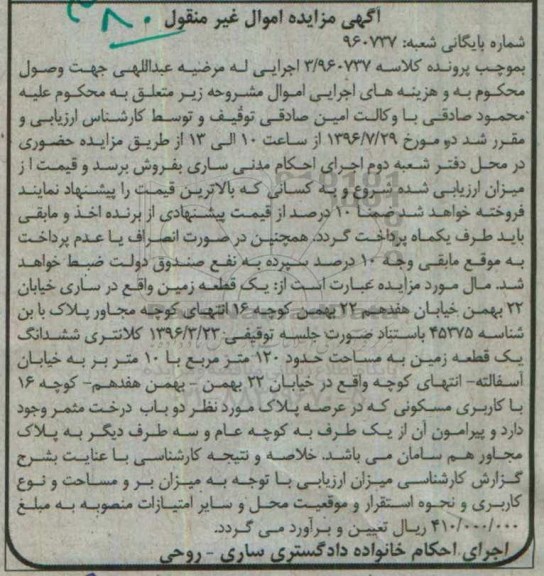 ۸۰
آگهی مزایده اموال غیر منقول
شماره بایگانی شعبه: ۹۶۰۷۳۷
بموجب پرونده کلاسه ۳/۹۶۰۷۳۷ اجرایی له مرضیه عبداللهی جهت وصول
محکوم به و هزینه های اجرایی اموال مشروحه زیر متعلق به محکوم علیه
محمود صادقی با وکالت امین صادقی توقیف و توسط کارشناس ارزیابی و
مقرر شد دو مورخ ۱۳۹۶/۷/۲۹ از ساعت ۱۰ الی ۱۳ از طریق مزایده حضوری
در محل دفتر شعبه دوم اجرای احکام مدنی ساری بفروش برسد و قیمت ا ز
میزان ارزیابی شده شروع و به کسانی که بالاترین قیمت را پیشنهاد نمایند
فروخته خواهد شد ضمنا ۱۰ درصد از قیمت پیشنهادی از برنده اخذ و مابقی
باید ظرف یکماه پرداخت گردد. همچنین در صورت انصراف یا عدم پرداخت
به موقع مابقی وجه ۱۰ درصد سپرده به نفع صندوق دولت ضبط خواهد
شد. مال مورد مزایده عبارت است از: یک قطعه زمین واقع در ساری خیابان
۲۲ بهمن خیابان هفدهم ۲۲ بهمن کوچه ۱۶ انتهای کوچه مجاور پلاک با بن
شناسه ۴۵۳۷۵ باستناد صورت جلسه توقیفی ۱۳۹۶/۳/۲۳ کلانتری ششدانگ
یک قطعه زمین به مساحت حدود ۱۲۰ متر مربع با ۱۰ متر بر به خیابان
آسفالته- انتهای کوچه واقع در خیابان ۲۲ بهمن - بهمن هفدهم- کوچه ۱۶
با کاربری مسکونی که در عرصه پلاک مورد نظر دو باب درخت مثمر وجود
دارد و پیرامون آن از یک طرف به کوچه عام و سه طرف دیگر به پلاک
مجاور هم سامان می باشد. خلاصه و نتیجه کارشناسی با عنایت بشرح
گزارش کارشناسی میزان ارزیابی با توجه به میزان بر و مساحت و نوع
کاربری و نحوه استقرار و موقعیت محل و سایر امتیازات منصوبه به مبلغ
۴۱۰/۰۰۰/۰۰۰ ریال تعیین و برآورد می گردد.
اجرای احکام خانواده دادگستری ساری - روحی